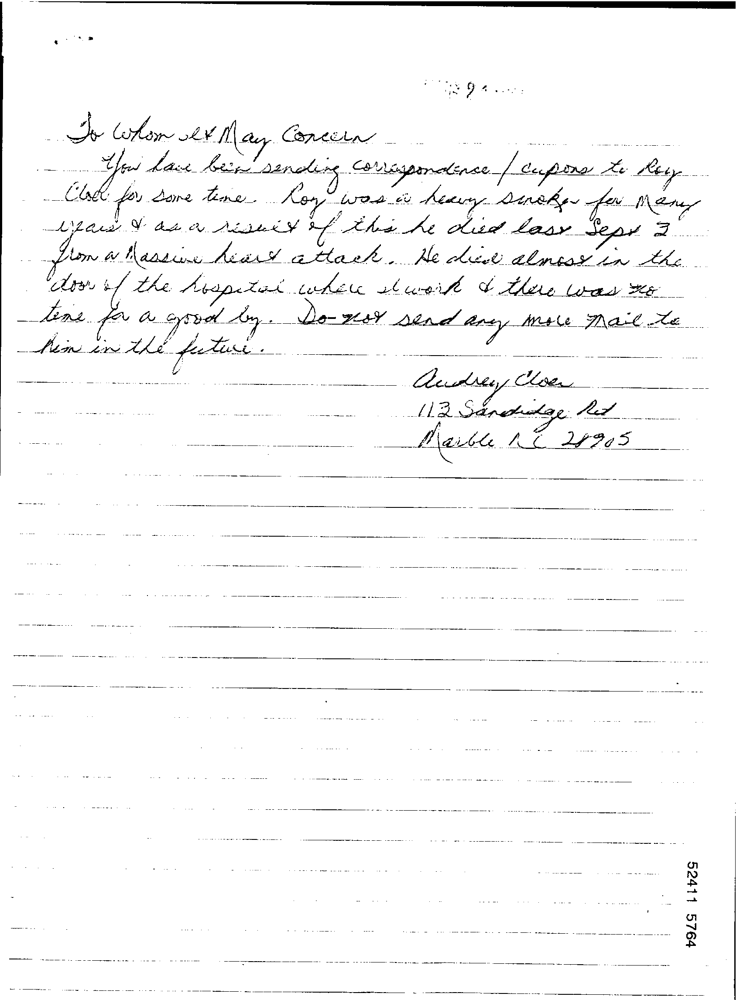 To Whom It May Concern
You have been sending correspondence / cupons to Roy
Cloer for some time. Roy was a heavy smoker for Many
years & as a result of this he died last Sept 3
from a Massive heart attack. He died almost in the
door of the hospital where I work & there was no
time for a good by. Do-not send any more Mail to
him in the future.
Audrey Cloer
113 Sandridge Rd
Marble NC 28905
52411 5764